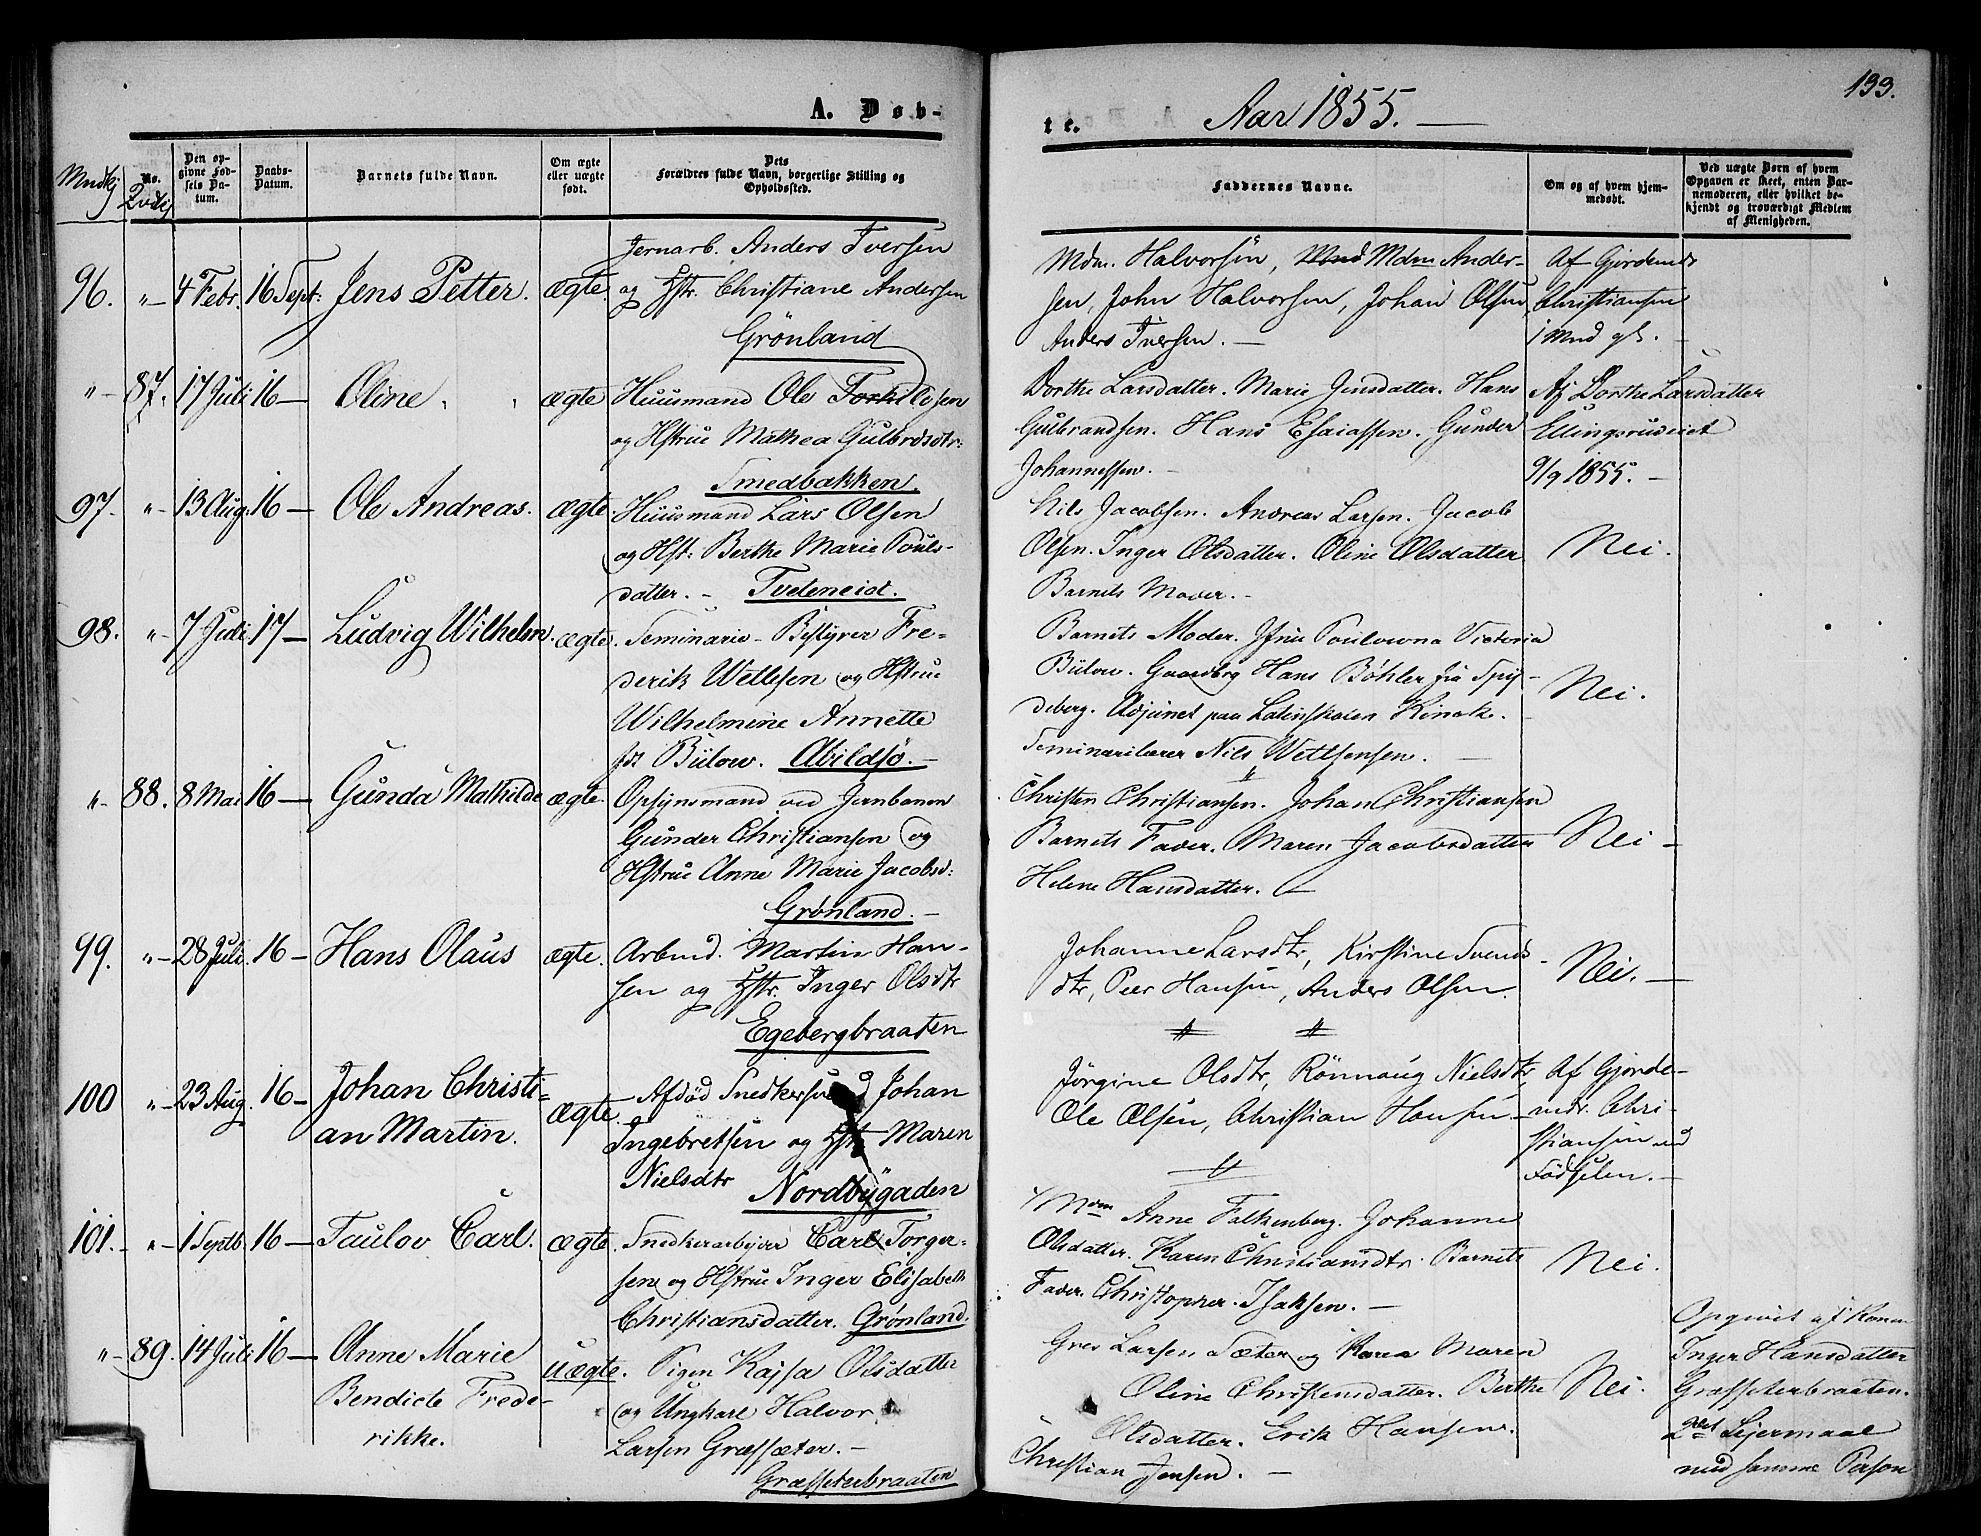 A. Døb-
te.
Aar 1855.
133.
Mndkj
No.
Qvdkj
Den op-
givne Fød-
sels Da-
tum.
Daabs-
Datum.
Barnets fulde Navn.
Om ægte
eller uægte
født.
Dets
Forældres fulde Navn, borgerlige Stilling og
Opholdssted.
Faddernes Navne.
Om og af hvem hjem-
medøbt.
Ved uægte Børn af hvem
Opgaven er skeet, enten Bar-
nemoderen, eller hvilket be-
kjendt og troværdigt Medlem
af Menigheden.
96. "- 4 Febr. 16 Sept: Jens Petter. ægte.
Jernarb. Anders Iversen
og Hstr. Christiane Andersen
Grönland
Mdm. Halvorsen, Mdm Ander-
sen, John Halvorsen, Johan Olsen
Anders Iversen. -
Af Gjordemdr
Christiansen
1 Mnd gl. -
"- 87. 17 Juli 16 - Oline ægte
Huusmand Ole Torkildsen
og Hstrue Mathea Gulbrdsdtr:
Smedbakken.
Dorthe Larsdatter. Marie Jensdatter. Hans
Gulbrandsen. Hans Esaiassen. Gunder
Johannessen. -
Af Dorthe Larsdatter
Ellingsrudeiet
9/9 1855. -
97. "- 13 Aug. 16 - Ole Andreas. ægte.
Huusmand Lars Olsen
og Hst: Berthe Marie Pouls-
datter. - Tvedeneiet.
Nils Jacobsen. Andreas Larsen. Jacob
Olsen. Inger Olsdatter. Oline Olsdatter
Barnets Moder. -
Nei.
98. "- 7 Juli 17 - Ludvig Wilhelm. ægte.
Seminarie-Bestyrer Fre-
derik Wetlesen og Hstrue
Wilhelmine Annette
fdt Bülow. Abildsö. -
Barnets Moder. Frue Poulowna Victoria
Bülow. Gaardbrg Hans Böhler fra Spy-
deberg. Adjunct paa Latinskolen Kinck.
Seminarilærer Nils Wetlesen. -
Nei.
"- 88. 8 Mai 16 - Gunda Mathilde ægte.
Opsynsmand ved Jernbanen
Gunder Christiansen og
Hstrue Anne Marie Jacobsd:
Grønland. -
Christen Christiansen. Johan Christiansen
Barnets Fader. Maren Jacobsdatter
Helene Hansdatter. -
Nei -
99. "- 28 Juli 16 - Hans Olaus ægte.
Arbmd. Martin Han-
sen og Hstr. Inger Olsdtr
Egebergbraaten
Johanne Larsdtr, Kirstine Svends-
dtr, Peer Hansen, Anders Olsen.
Nei. -
100 "- 23 Aug. 16 - Johan Christi-
an Martin. ægte.
Afdöd Snedkersvend Johan
Ingebretsen og Hstr Maren
Nielsdtr Nordbygaden
Jörgine Olsdtr, Rönnaug Nielsdtr,
Ole Olsen, Christian Hansen. -
Af Gjorde-
mdr. Chri-
stiansen ved
Födselen. -
101. "- 1 Septb. 16 - Taulov Carl. ægte.
Snedkerarbejder Carl Torger-
sen og Hstrue Inger Elisabeth
Christiansdatter. Grønland.
Mdm Anne Falkenberg. Johanne
Olsdatter. Karen Christiansdtr. Barnets
Fader. Christopher Isaksen. -
Nei.
"- 89. 14 Juli 16 - Anne Marie
Bendicte Frede-
rikke. uægte.
Pigen Kajsa Olsdatter
og Ungkarl Halvor
Larsen Græssæter. -
Græsseterbraaten
Gres Larsen Sæter og Karen Maren
Oline Christensdatter. Berthe
Olsdatter. Erik Hansen.
Christian Jensen. -
Nei.
Opgivet af Konen
Inger Hansdatter
Græsseterbraaten.
2det Lejermaal
med samme Person